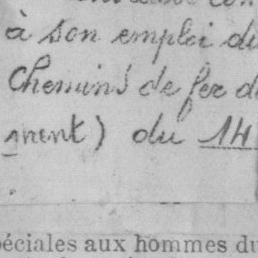 à son emploi du
Chemins de fer d
ment) du 14
péciales aux hommes du